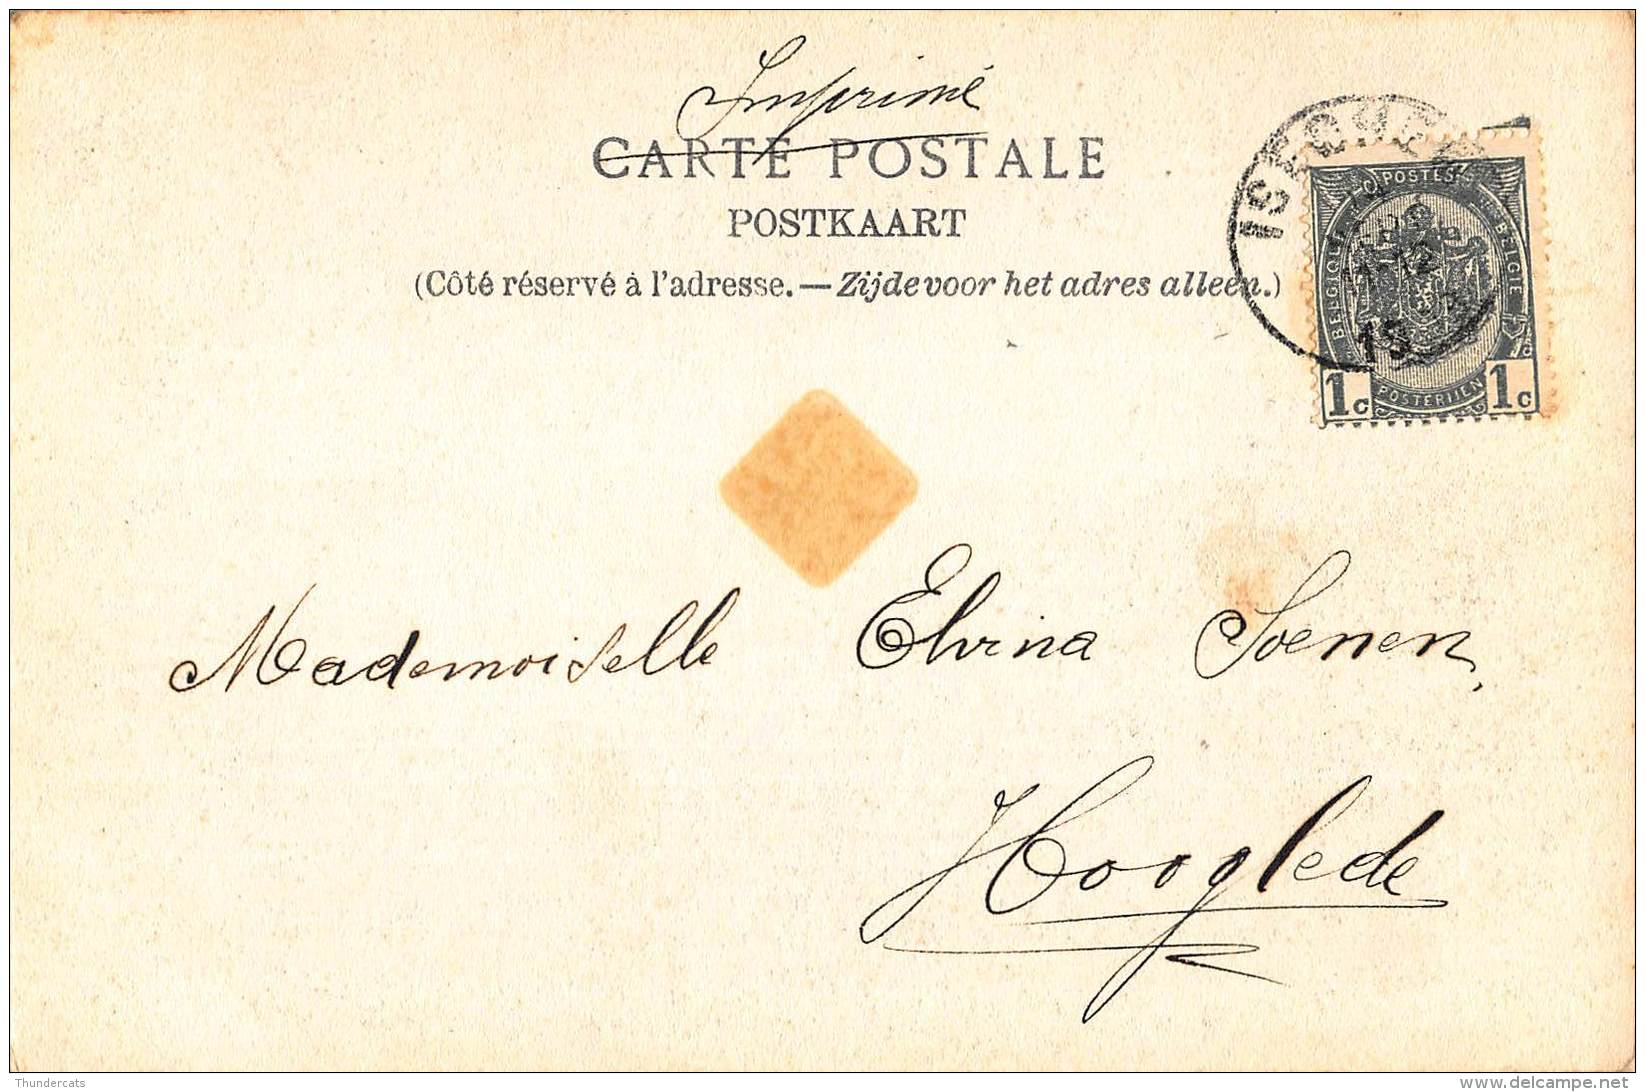 Imprimé
CARTE POSTALE
POSTKAART
(Côté réservé à l'adresse. — Zijde voor het adres alleen.)
ISEGHEM
11-12
19
POSTES
BELGIQUE
BELGIË
1c 1c
POSTERIJEN
Mademoiselle Elvina Soenen,
Hooglede
Thundercats
delcampe.net